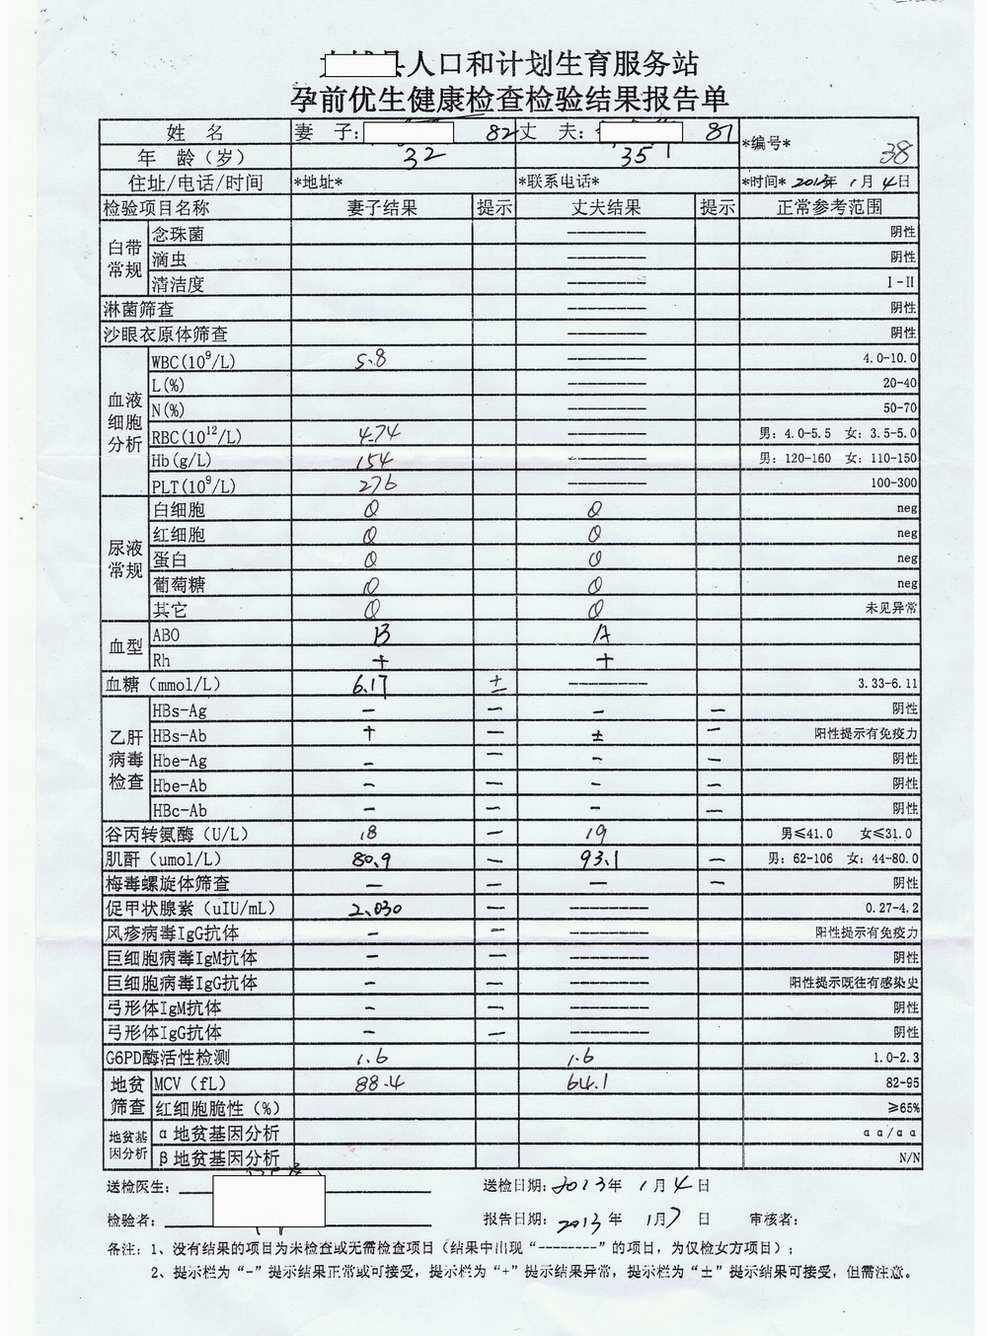 县人口和计划生育服务站
孕前优生健康检查检验结果报告单
姓 名 妻 子: 82 丈 夫: 81 *编号* 38
年 龄(岁) 32 35
住址/电话/时间 *地址* *联系电话* *时间* 2013年 1月 4日
检验项目名称 妻子结果 提示 丈夫结果 提示 正常参考范围
白带常规 念珠菌 -------- 阴性
滴虫 -------- 阴性
清洁度 -------- I-II
淋菌筛查 -------- 阴性
沙眼衣原体筛查 -------- 阴性
血液细胞分析 WBC(10⁹/L) 5.8 -------- 4.0-10.0
L(%) -------- 20-40
N(%) -------- 50-70
RBC(10¹²/L) 4.74 -------- 男: 4.0-5.5 女: 3.5-5.0
Hb(g/L) 154 -------- 男: 120-160 女: 110-150
PLT(10⁹/L) 276 -------- 100-300
尿液常规 白细胞 0 0 neg
红细胞 0 0 neg
蛋白 0 0 neg
葡萄糖 0 0 neg
其它 0 0 未见异常
血型 ABO B A
Rh + +
血糖(mmol/L) 6.17 ± -------- 3.33-6.11
乙肝病毒检查 HBs-Ag - - - - 阴性
HBs-Ab + - ± - 阳性提示有免疫力
Hbe-Ag - - - - 阴性
Hbe-Ab - - - - 阴性
HBc-Ab - - - - 阴性
谷丙转氨酶(U/L) 18 - 19 男≤41.0 女≤31.0
肌酐(umol/L) 80.9 - 93.1 - 男: 62-106 女: 44-80.0
梅毒螺旋体筛查 - - - - 阴性
促甲状腺素(uIU/mL) 2.030 - -------- 0.27-4.2
风疹病毒IgG抗体 - - -------- 阳性提示有免疫力
巨细胞病毒IgM抗体 - - -------- 阴性
巨细胞病毒IgG抗体 - - -------- 阳性提示既往有感染史
弓形体IgM抗体 - - -------- 阴性
弓形体IgG抗体 - - -------- 阴性
G6PD酶活性检测 1.6 1.6 1.0-2.3
地贫筛查 MCV(fL) 88.4 64.1 82-95
红细胞脆性(%) ≥65%
地贫基因分析 α地贫基因分析 αα/αα
β地贫基因分析 N/N
送检医生: 送检日期: 2013年 1月 4日
检验者: 报告日期: 2013年 1月7日 审核者:
备注: 1、没有结果的项目为未检查或无需检查项目(结果中出现“--------”的项目,为仅检女方项目);
2、提示栏为“-”提示结果正常或可接受,提示栏为“+”提示结果异常,提示栏为“±”提示结果可接受,但需注意。